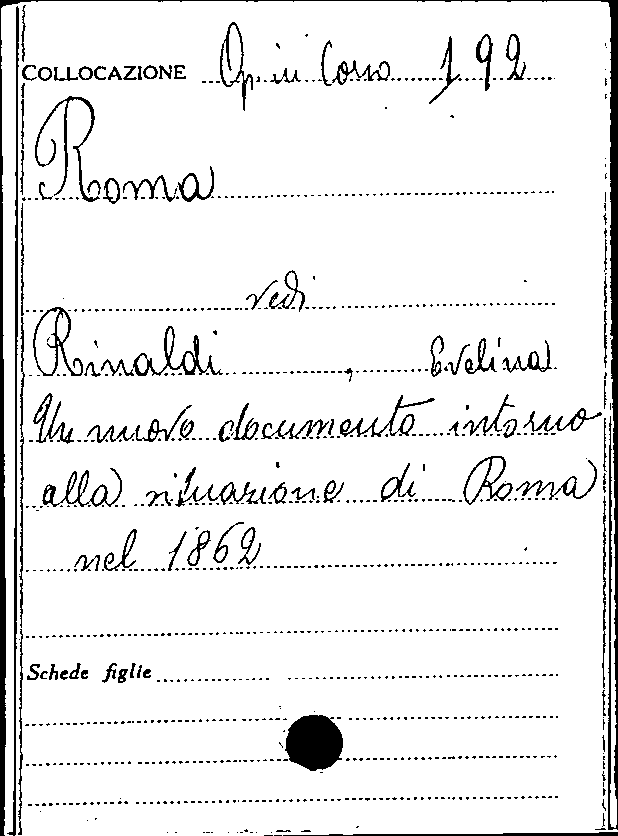 COLLOCAZIONE Op. in Corso 192
Roma
vedi
Rinaldi, Evelina
Un nuovo documento intorno
alla situazione di Roma
nel 1862
Schede figlie